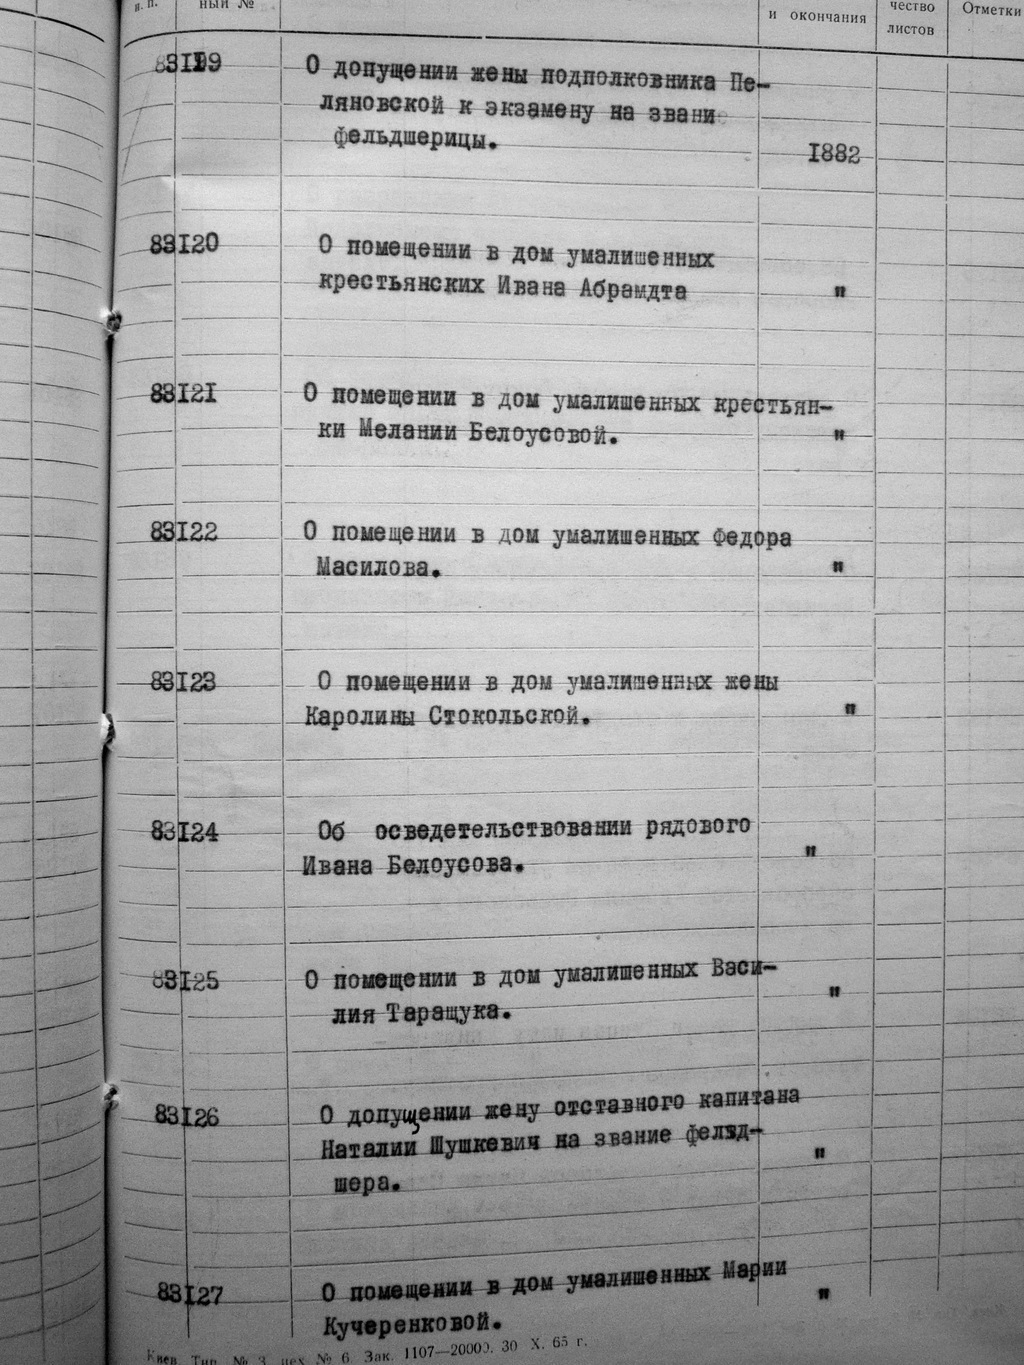 п. п.
ный №
и окончания
чество
листов
Отметки
83119 О допущении жены подполковника Пе-
ляновской к экзамену на звани
фельдшерицы.
1882
83120 О помещении в дом умалишенных
крестьянских Ивана Абрамдта "
83121 О помещении в дом умалишенных крестьян-
ки Мелании Белоусовой. "
83122 О помещении в дом умалишенных Федора
Масилова. "
83123 О помещении в дом умалишенных жены
Каролины Стокольской. "
83124 Об осведетельствовании рядового
Ивана Белоусова. "
83125 О помещении в дом умалишенных Васи-
лия Таращука. "
83126 О допущении жену отставного капитана
Наталии Шушкевич на звание фельд-
шера. "
83127 О помещении в дом умалишенных Марии
Кучеренковой. "
Киев. Тип. № 3, цех № 6. Зак. 1107—20000. 30 X. 65 г.